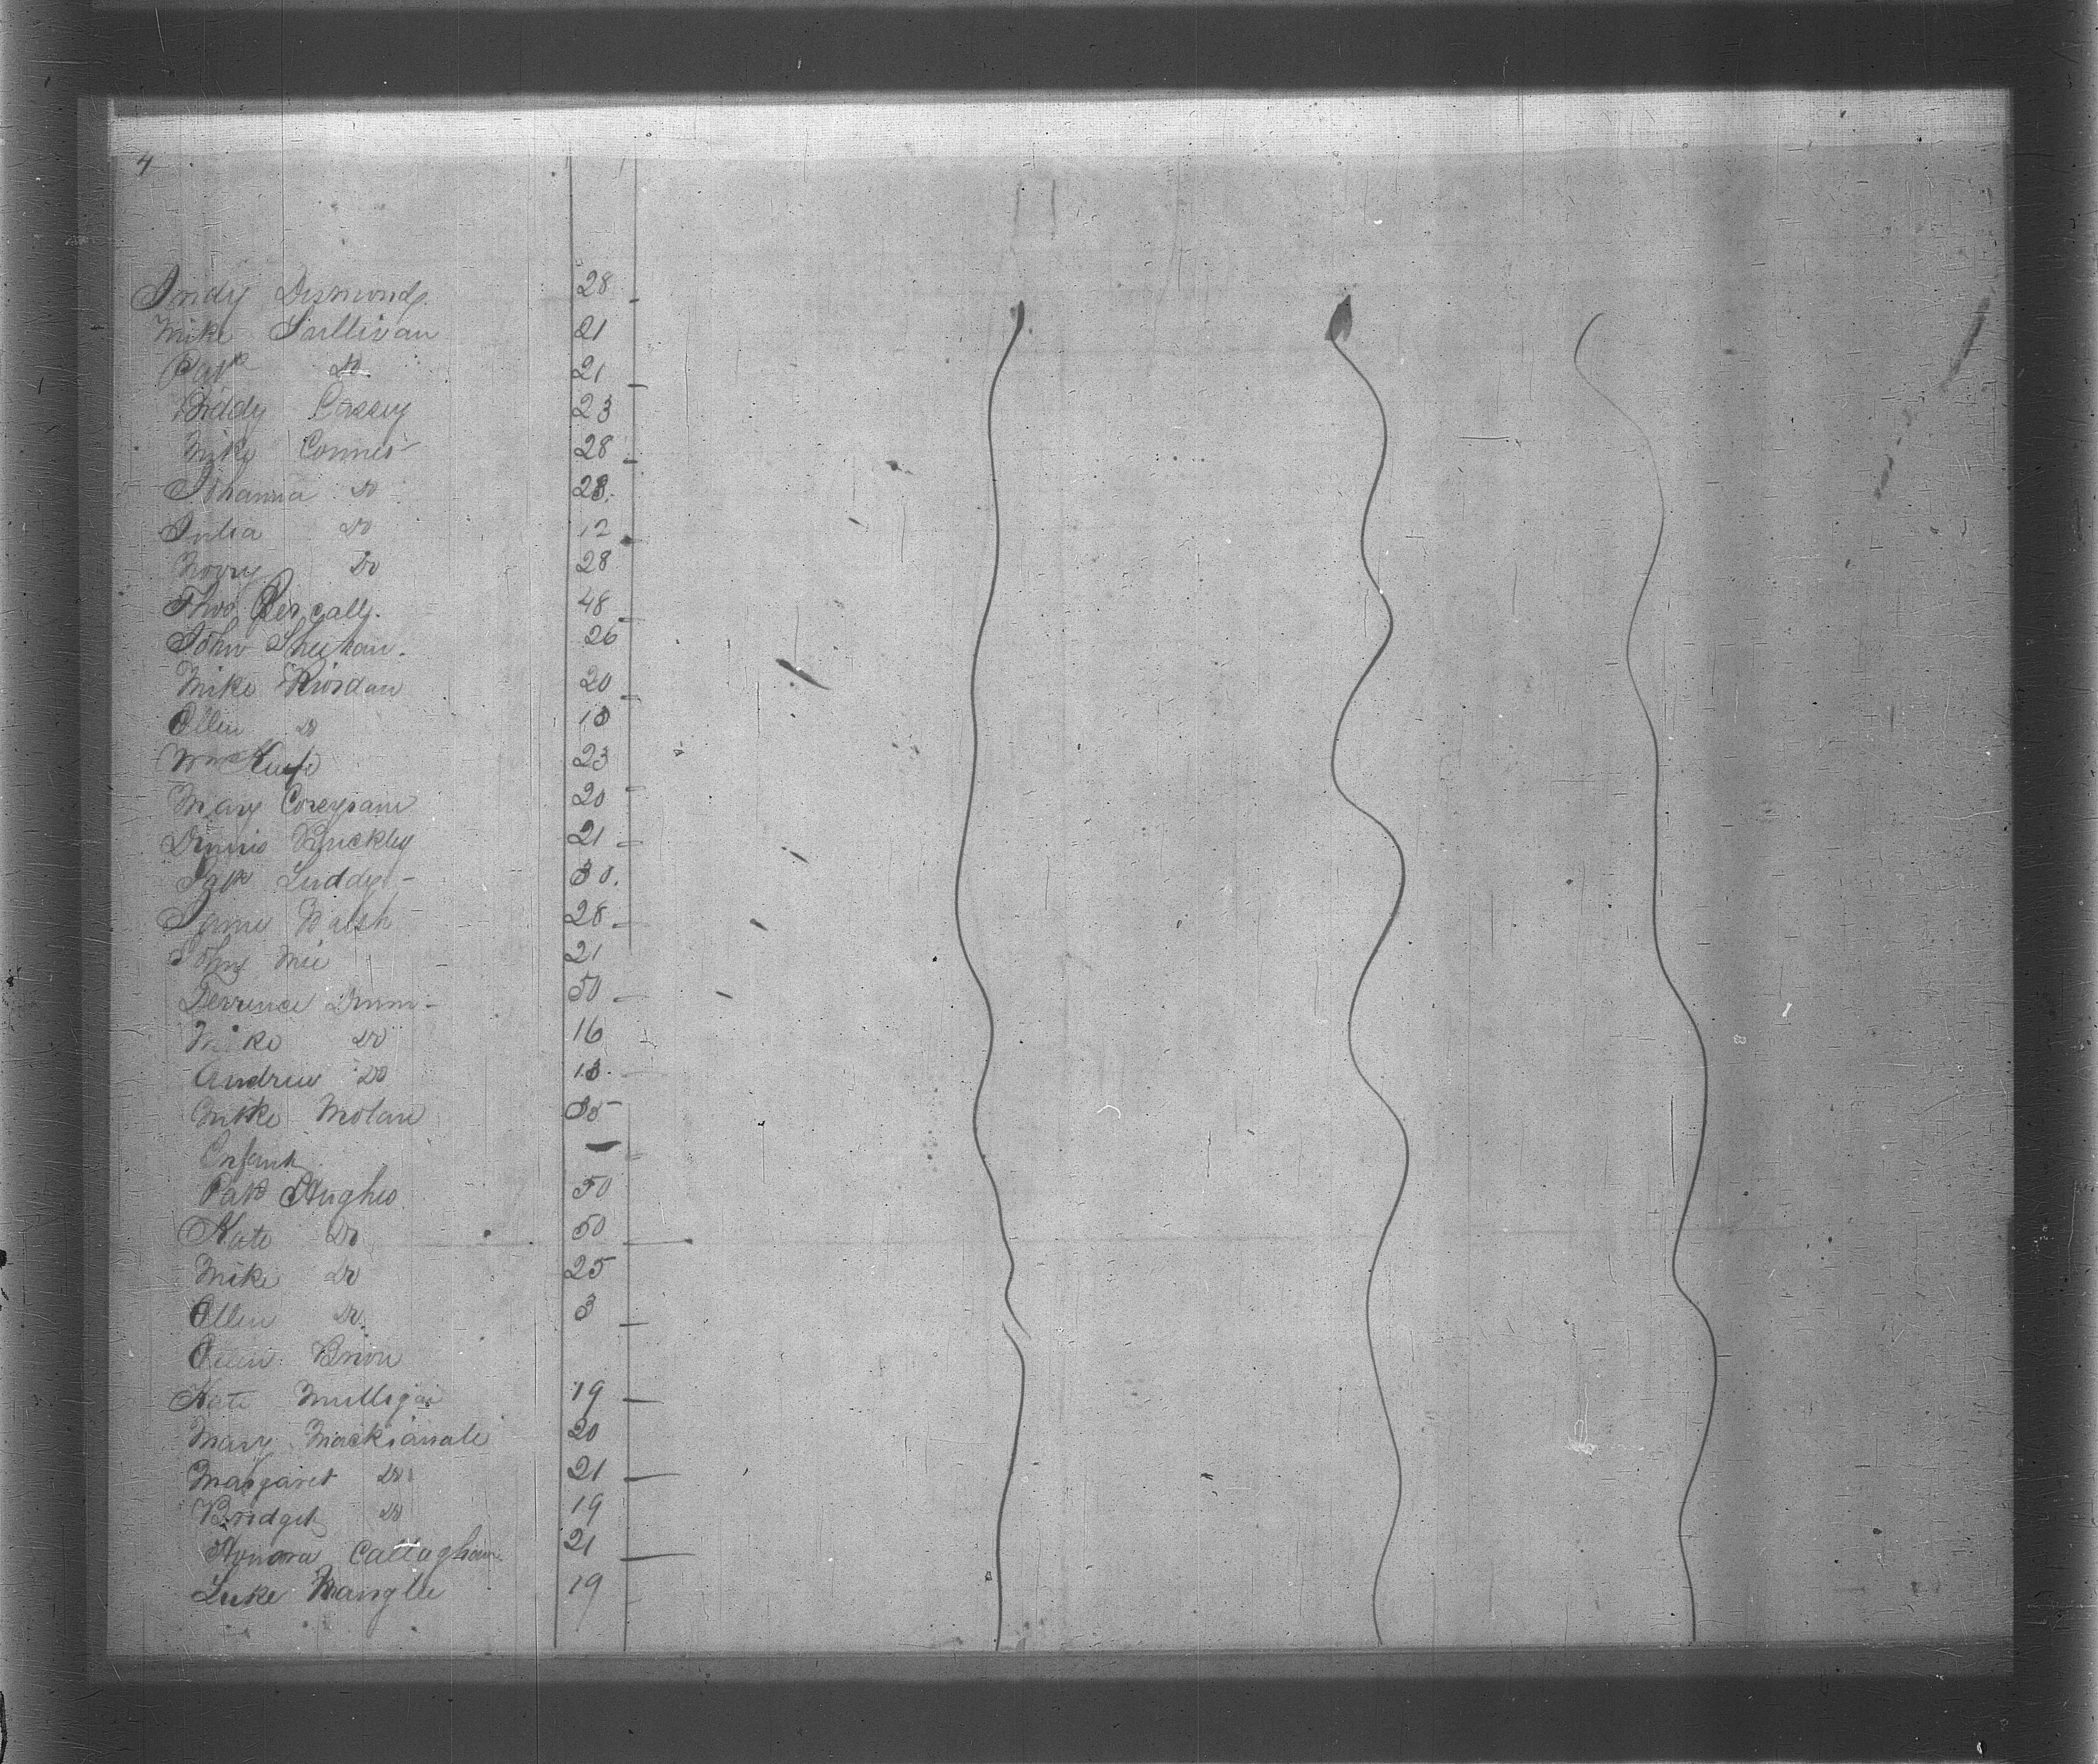 4
Andy Dismond 28
Mike Sullivan 21
Patk Do 21
Biddy Casey 23
Mike Connes 28
Johanna Do 28
Julia Do 12
Do 28
Thos 48
John Sheehan. 26
Mike Riordan 20
Ellen Do
Wm Keefe 23
Mary 20
Dinnis Buckley 21
Patk Luddy 30.
Jame Walsh 28
John 21
Terrence Drum 50
Mike Do 16
Andrew Do 13.
Mike Molan 35
Infant —
Patk Hughes 50
Kate Do 50
Mike Do 25
Ellen Do. 3
Ellen Brion
Kate Mulligan 19
Mary 20
Margaret Do 21
Bridget Do 19
Honora Callaghan. 21
Luke 19